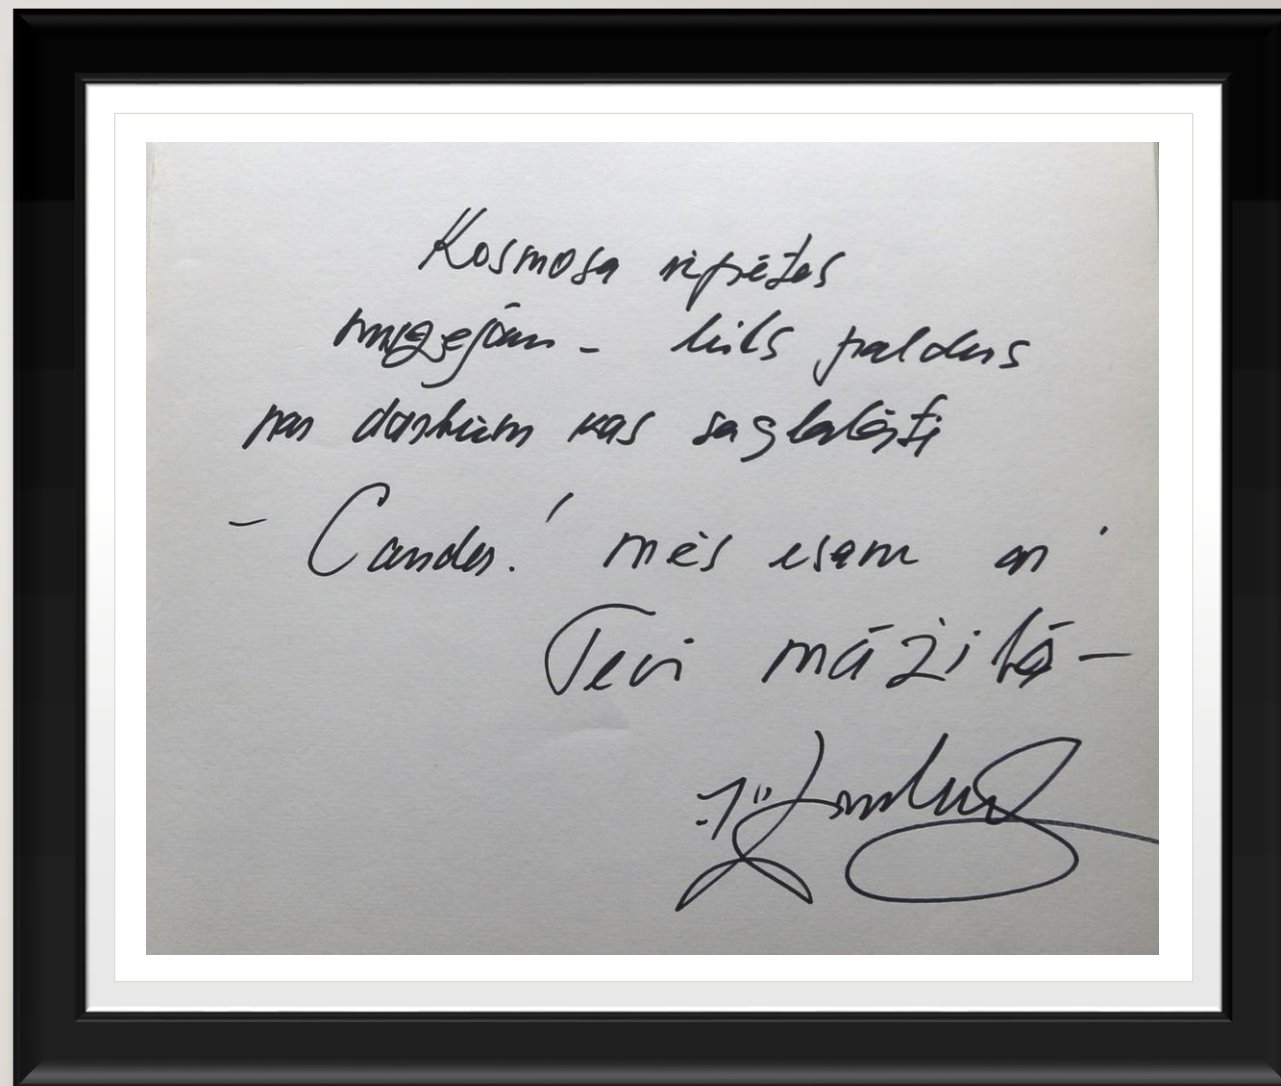 Kosmosa izpētes
muzejam - liels paldies
par darbiem kas saglabāsti
- Candor! mēs esam ar
Tevi mūžībā -